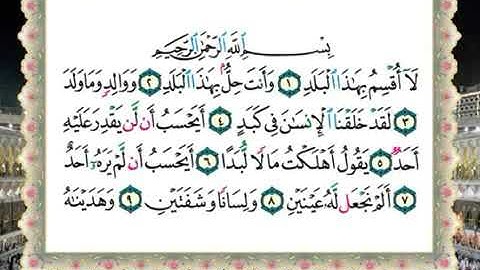 بِسْمِ ٱللَّهِ ٱلرَّحْمَٰنِ ٱلرَّحِيمِ
لَآ أُقْسِمُ بِهَٰذَا ٱلْبَلَدِ ١ وَأَنتَ حِلُّۢ بِهَٰذَا ٱلْبَلَدِ ٢ وَوَالِدٍ وَمَا وَلَدَ
٣ لَقَدْ خَلَقْنَا ٱلْإِنسَٰنَ فِى كَبَدٍ ٤ أَيَحْسَبُ أَن لَّن يَقْدِرَ عَلَيْهِ
أَحَدٌ ٥ يَقُولُ أَهْلَكْتُ مَالًا لُّبَدًا ٦ أَيَحْسَبُ أَن لَّمْ يَرَهُۥٓ أَحَدٌ
٧ أَلَمْ نَجْعَل لَّهُۥ عَيْنَيْنِ ٨ وَلِسَانًا وَشَفَتَيْنِ ٩ وَهَدَيْنَٰهُ